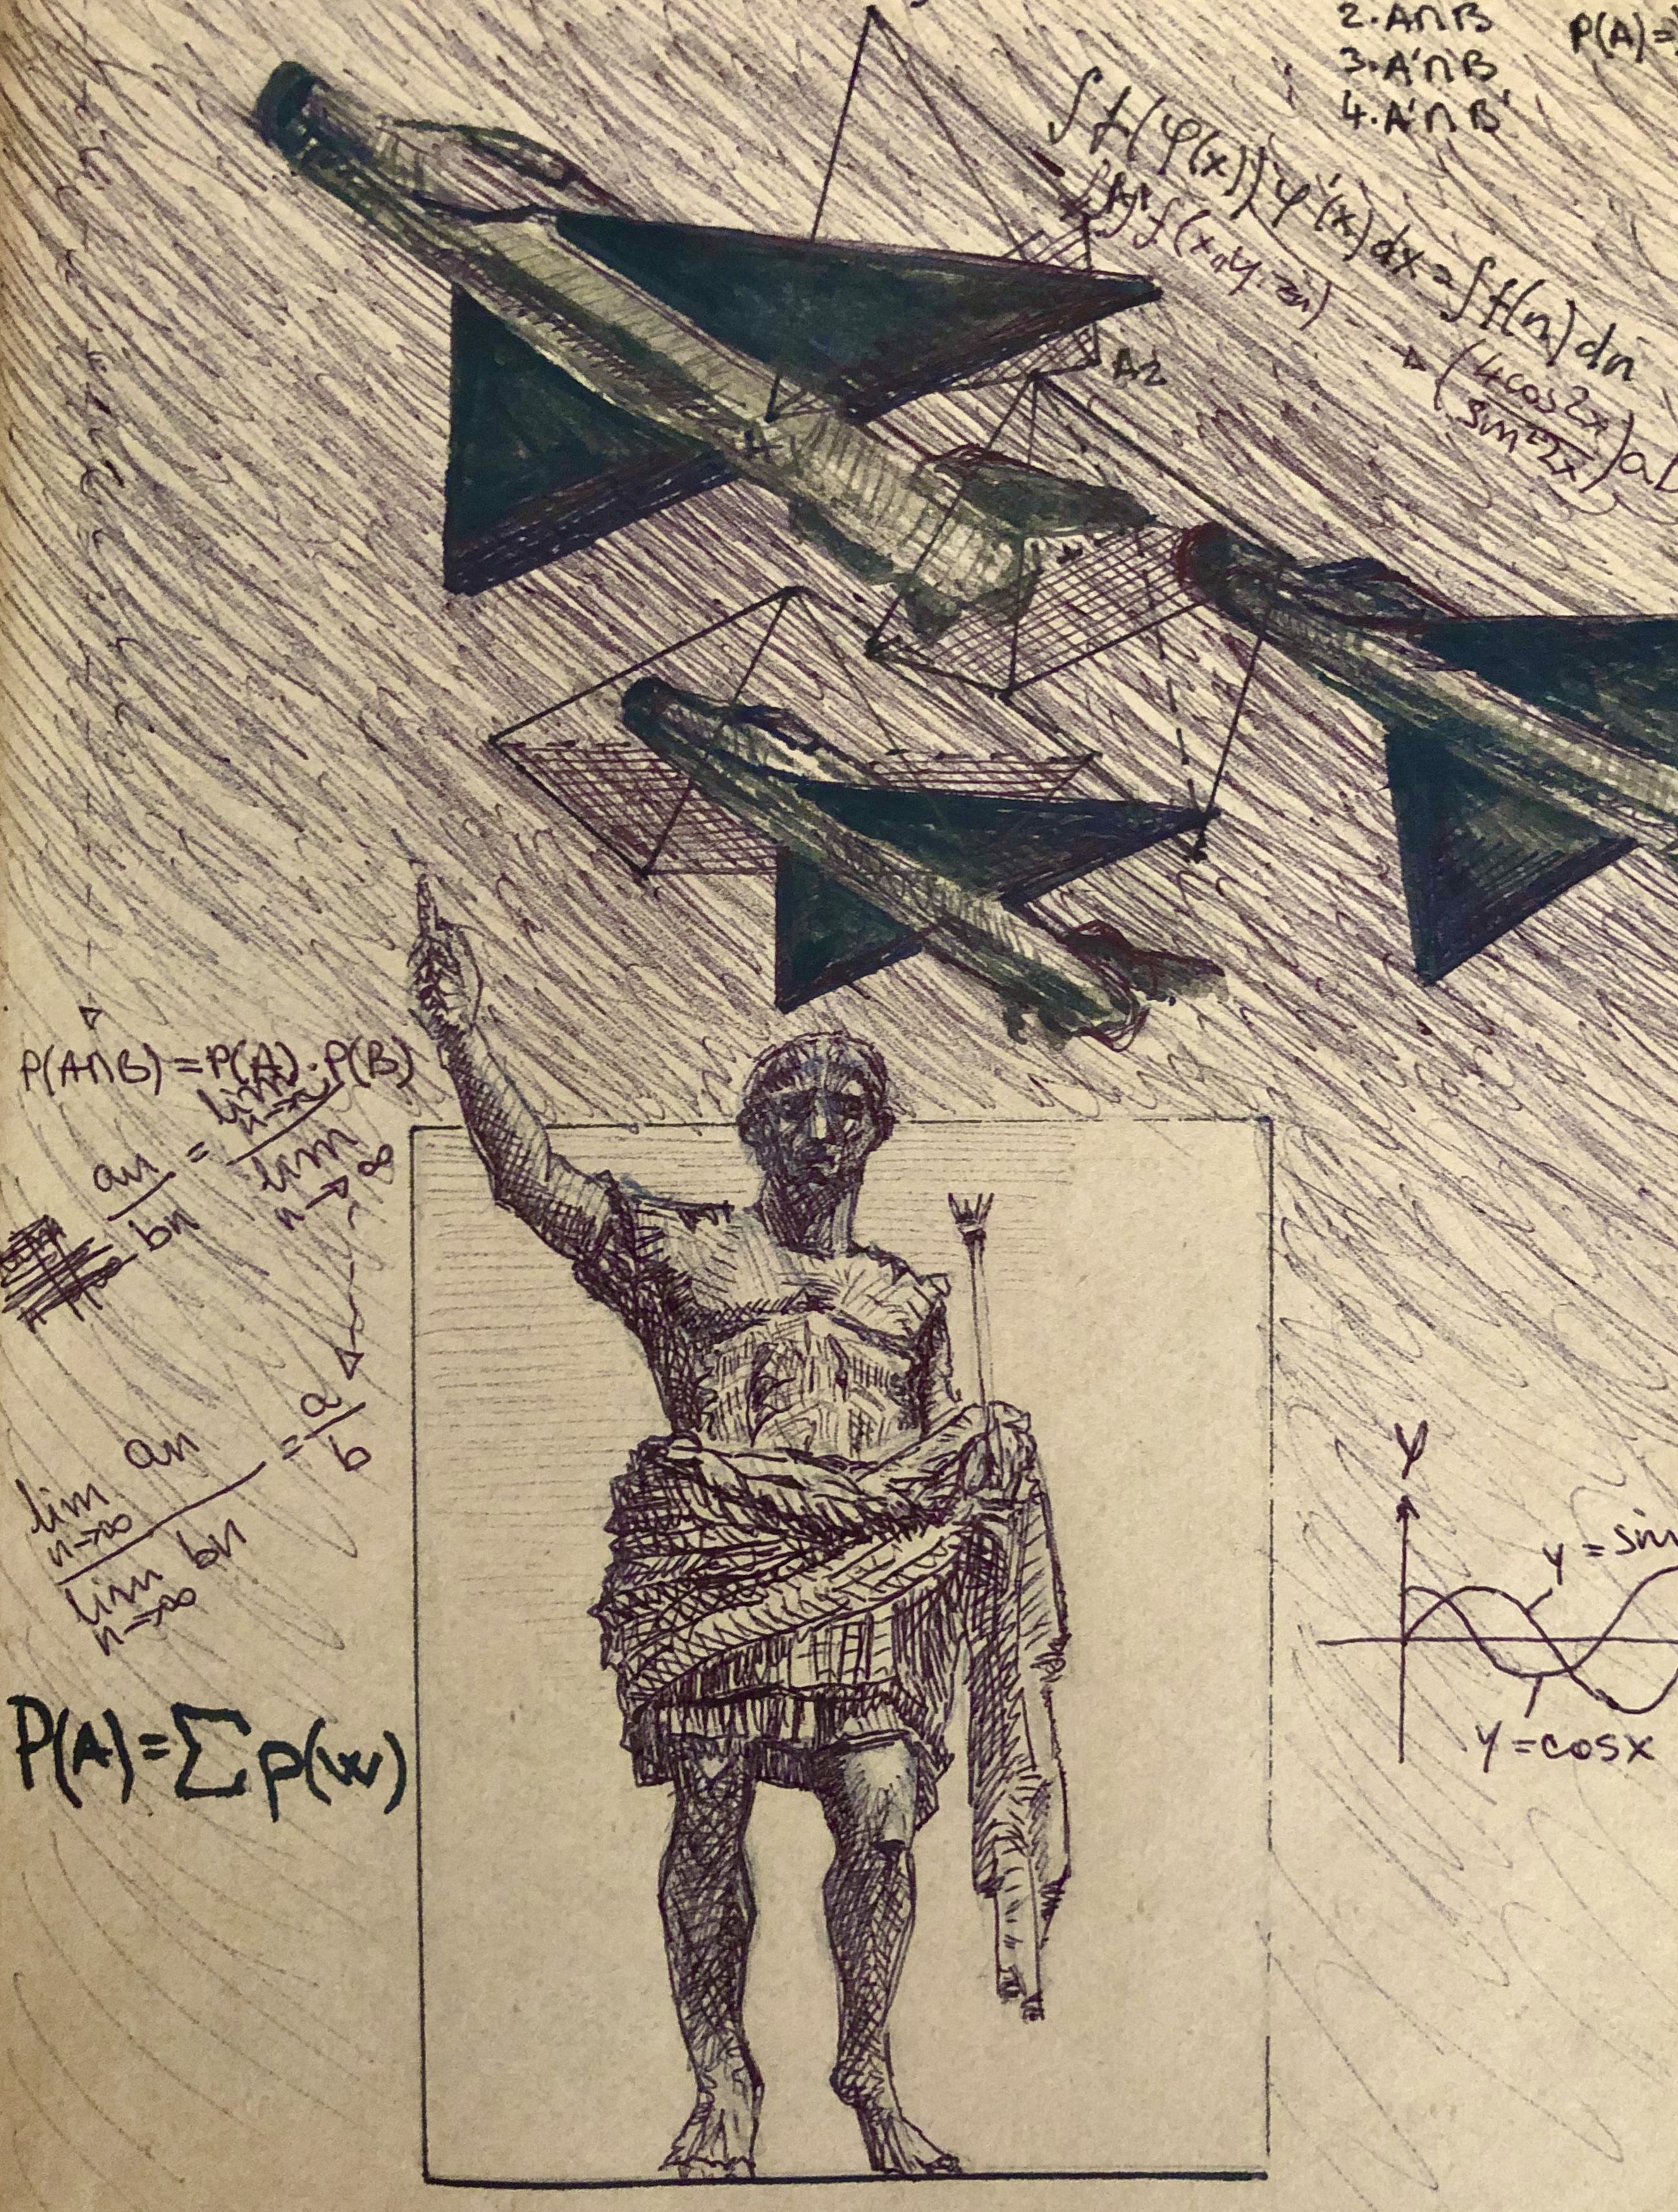 2. A∩B
P(A)=
3. A'∩B
4. A'∩B'
∫f(φ(x))φ'(x)dx=∫f(n)dn
f(x,y,zn)
(4cos2x / sin²2x)
A2
P(A∩B)=P(A).P(B)
an/bn = lim n→∞ / lim n→∞
lim n→∞ an / lim n→∞ bn = a/b
P(A)=∑p(w)
Y
y=sin
y=cosx